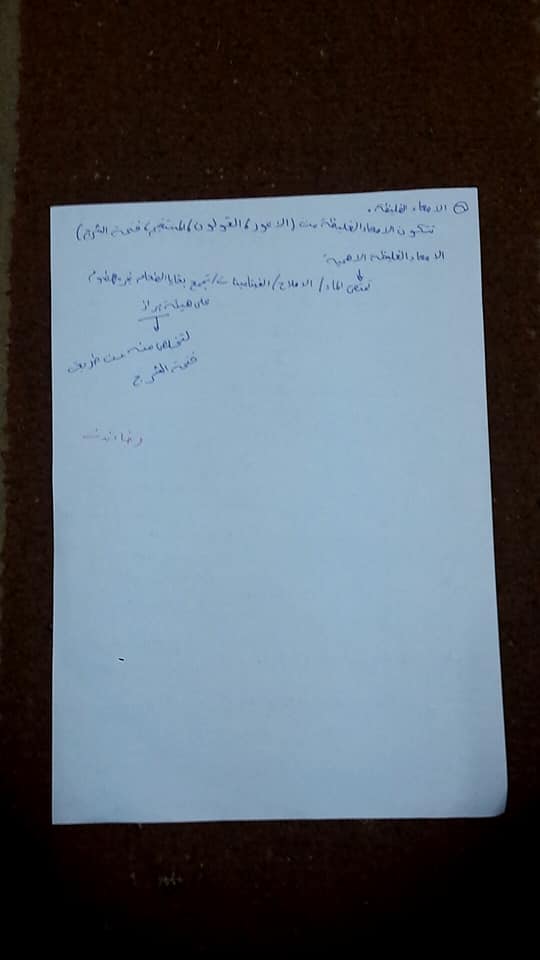 ⑤ الامعاء الغليظة.
تتكون الامعاء الغليظة من (الاعور، القولون، المستقيم، فتحة الشرج)
الامعاء الغليظة الاهمية
تمتص الماء / الاملاح / الفيتامينات / تجمع بقايا الطعام غير مهضوم
على هيئة براز
لتخلص منه من طريق
فتحة الشرج